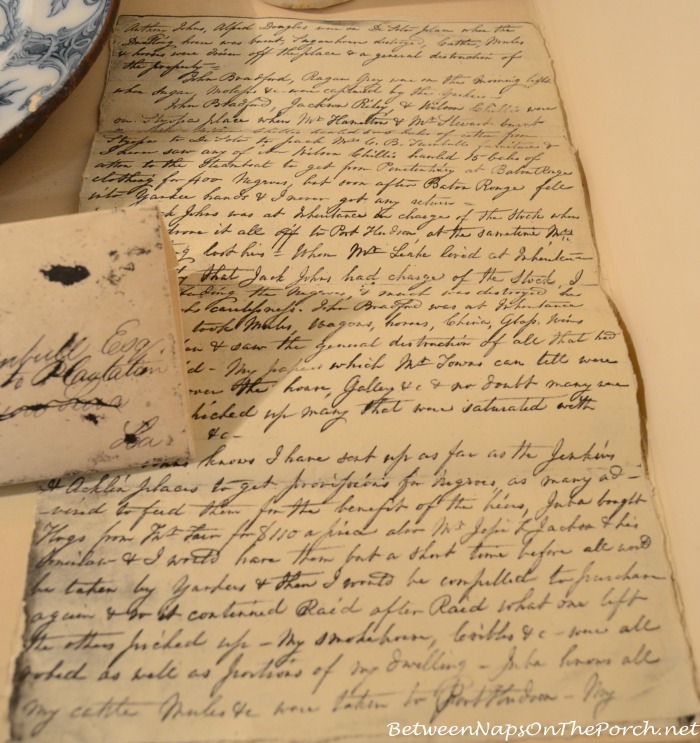 Anthony Johns, Alfred Douglas were on De Soto place when the
Dwelling house was burnt, Sugarhouse destroyed, Cattle, Mules
& horses were driven off the place & a general destruction of
the property =
John Bradford, Ragan Grey was on the morning light
when Sugar, Molasses &c were captured by the Yankees -
John Bradford, Jackson Riley & Wilson Chillis were
on place when Mr Hamilton & Mr Stewart burnt
bales of cotton from
to De Soto to pack Mrs C. B. Turnbull furnitures &
I never saw any of it Wilson Chillis hauled 15 bales of
cotton to the Steamboat to get from Penetentiary at Baton Rouge
clothing for 400 Negroes, but soon after Baton Rouge fell
into Yankee hands & I never got any return -
Johns was at Inheritance in charge of the Stock when
drove it all off to Port Hudson at the sametime Mrs
lost his - When Mr Leake lived at Inheritance
that Jack Johns had charge of the Stock, I
feeding the Negroes & much was destroyed by
carelessness. John Bradford was at Inheritance
took Mules, Wagons, horses, China, Glass, Wines
& saw the general distruction of all that had
- My papers which Mr Towns can tell were
over the house, Galley &c & no doubt many were
picked up many that were saturated with
&c -
nbull Esq
o Plantation
La
knows I have sent up as far as the Jenkins
& Acklin places to get provissions for Negroes as many ad-
vised to feed them for the benefit of the heirs, Juba bought
Hogs from Mr Fair for $110 a piece also Mr Jessi K Jackson & his
& I would have them but a short time before all would
be taken by Yankees & then I would be compelled to purchase
again & so it contenued Raid after Raid what one left
the others picked up - My smokehouse, &c - were all
robed as well as portions of my dwelling - Juba knows all
my cattle Mules &c were taken to Port Hudson - My
BetweenNapsOnThePorch.net